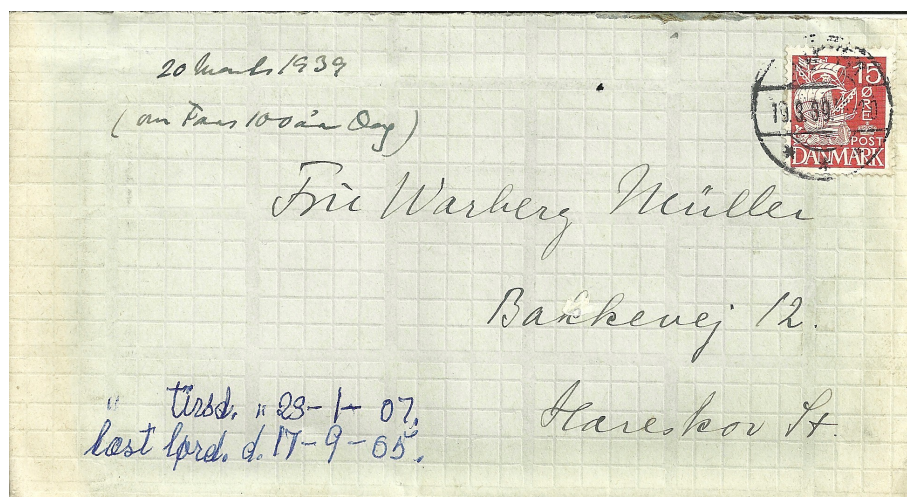 20 Marts 1939
(om Fars 100 års Dag)
15
ØRE
POST
DANMARK
19.3.39
Fru Warberg Müller
Bakkevej 12.
Hareskov St.
" tirsd. " 23-1-07.
læst lørd. d. 17-9-05.